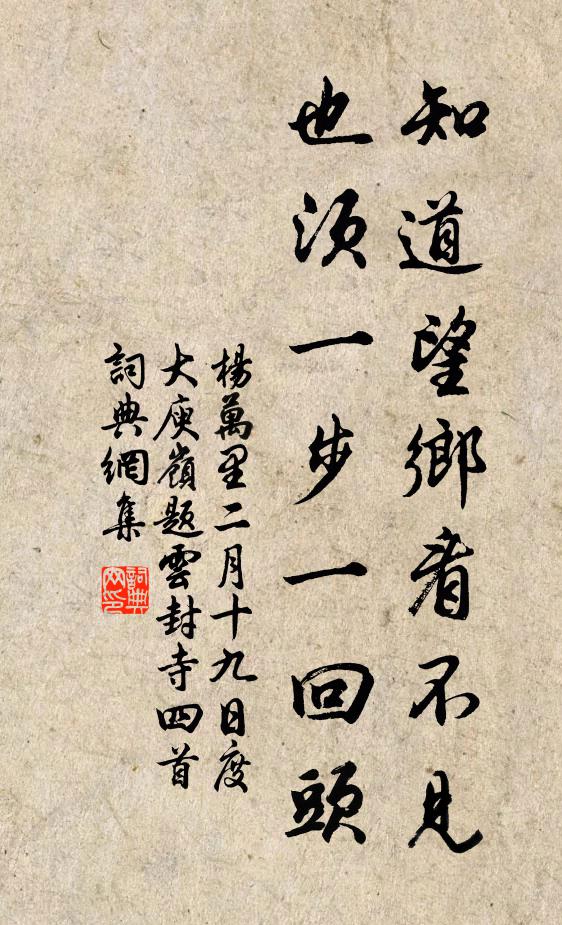 知道望鄉看不見
也須一步一回頭
楊萬里二月十九日度
大庾嶺題雲封寺四首
詞典網集
詞典網印